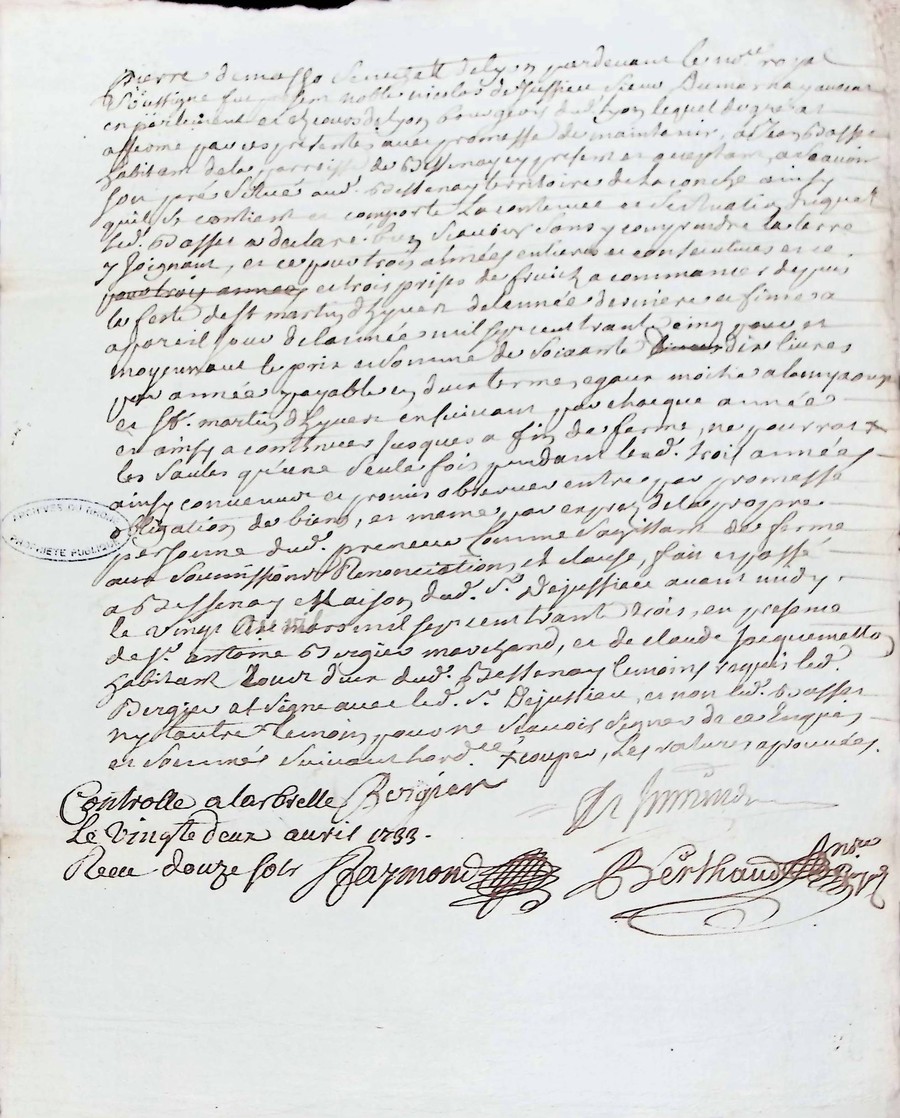 pierre de masso senechal de lyon pardevant le no.re royal
soussigné fut present noble nicolas de Jussieu sieur Dumarnay avocat
en parlement et es cours de Lyon bourgeois dud. Lyon lequel de gré a
affermé par ces presentes avec promesse de maintenir, a Jean Basset
habitant de la parroisse de Bessenay present et acceptant, a Scavoir
son pré situé aud. Bessenay territoire de la conche ainsy
quil se contient et comporte la contenue et scituation duquel
led. Basset a declaré bien scavoir sans y comprendre la terre
y Joignant, et ce pour trois années entieres et consecutives et ce
pour trois années et trois prises de fruicts a commancer depuis
la feste de St martin d'hyver de l'année derniere et finir a
a pareil jour de lannée mil sept cent trante cinq pour et
moyennant le prix et somme de soixante dix livres
par année payable en deux termes egaux moitié a
et St. martin d'hyver ensuivant par chaque année
et ainsy a continuer jusques a fin de ferme, ne pourra +
les saules qu'une seule fois pendant lesd. trois années
ainsy convenu et promis observer entre par promesse
obligation de biens, et meme par expres de la propre
personne dud. preneur comme s'agissant de ferme
aux soumissions Renonciations et clause, fait et passé
a Bessenay Maison dud. Sr. Dejussieu avant midy
le vingt mil sept cent trante trois, en presence
de Sr. antoine Bergier marchand, et de claude Jacquemetton
habitant tous deux dud. Bessenay temoins requis led.
Bergier a signé avec led. Sr. Dejussieu, et non led. Basset
ny l'autre temoin pour ne scavoir signer de ce Enquis
et sommés suivant l'ord.ce + couper, les ratures aprouvées.
Controlle a larbrelle Bergier
Le vingte deux avril 1733.
Receu douze sols Raymond Berthaud No.re
ARCHIVES DU RHONE
PROPRIETE PUBLIQUE